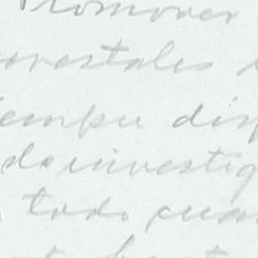 Promover
orestales
iempre dis
de investig
todo cua